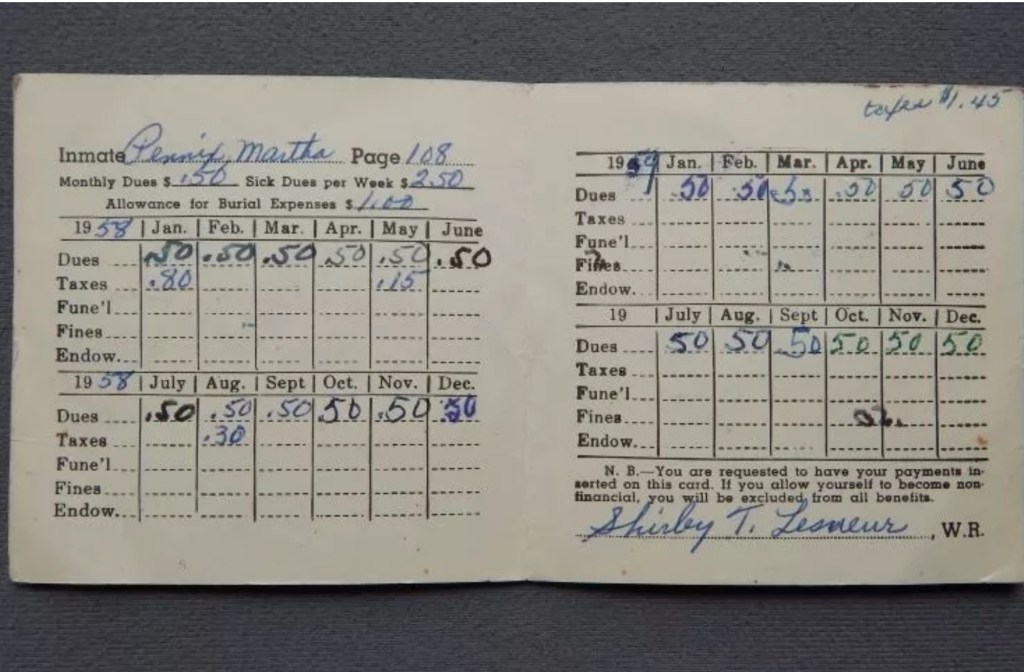 Inmate Pennix, Martha Page 108
Monthly Dues $ .50 Sick Dues per Week $ 2.50
Allowance for Burial Expenses $ 1.00
1958 | Jan. | Feb. | Mar. | Apr. | May | June
Dues .50 .50 .50 .50 .50 .50
Taxes .80 .15
Fune'l
Fines
Endow.
1958 | July | Aug. | Sept | Oct. | Nov. | Dec.
Dues .50 .50 .50 .50 .50 50
Taxes .30
Fune'l
Fines
Endow.
taxes $1.45
1959 | Jan. | Feb. | Mar. | Apr. | May | June
Dues .50 .50 .50 50 50
Taxes
Fune'l
Fines
Endow.
19 | July | Aug. | Sept | Oct. | Nov. | Dec.
Dues 50 50 50 50 50 50
Taxes
Fune'l
Fines
Endow.
N. B.—You are requested to have your payments in-
serted on this card. If you allow yourself to become non-
financial, you will be excluded from all benefits.
Shirley T. Lesueur, W.R.